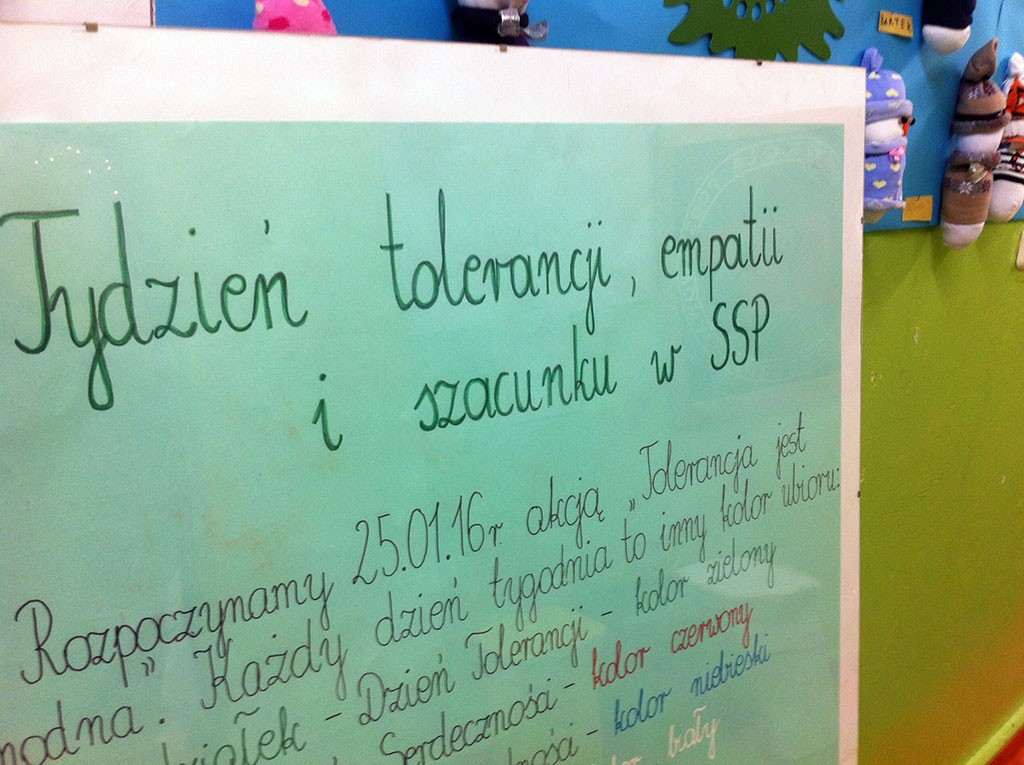 Tydzień tolerancji, empatii
i szacunku w SSP
Rozpoczynamy 25.01.16r. akcją „Tolerancja jest
modna”. Każdy dzień tygodnia to inny kolor ubioru:
- Dzień Tolerancji - kolor zielony
Serdeczności - kolor czerwony
- kolor niebieski
biały
BARTEK